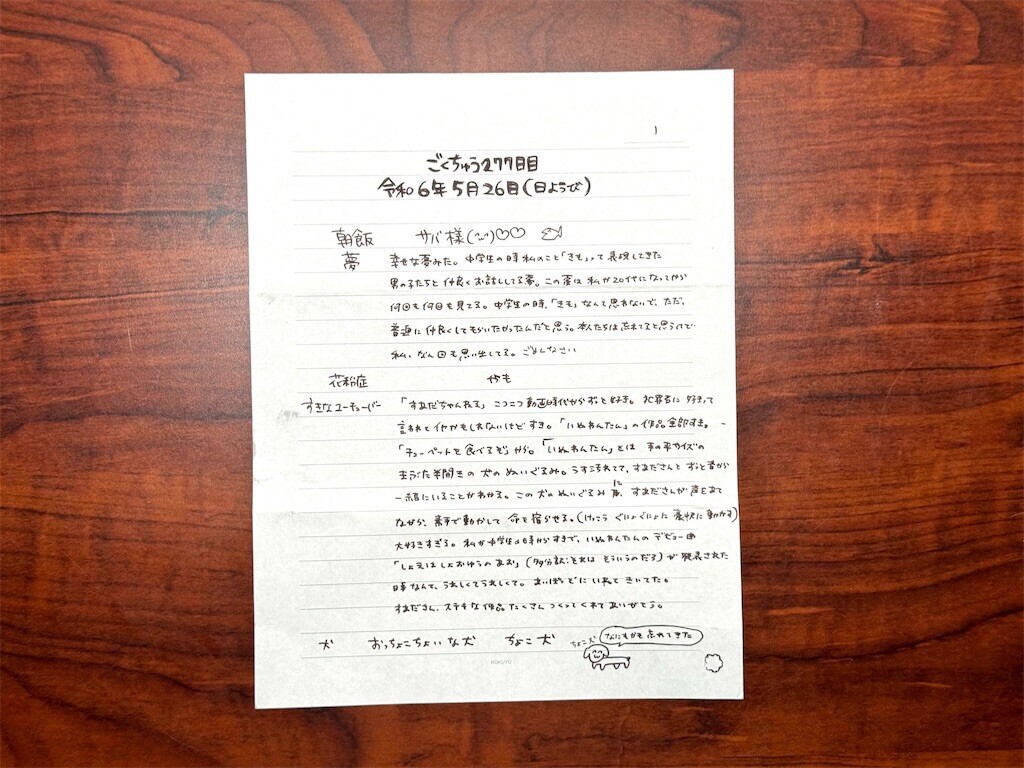 1
ごくちゅう277日目
令和6年5月26日(日ようび)
朝飯 サバ様(^~^)♡♡
夢 幸せな夢みた。中学生の時私のこと「きも」って表現してきた
男の子たちと仲良くお話ししてる夢。この夢は私が20代になってから
何回も何回も見てる。中学生の時、「きも」なんて思われないで、ただ、
普通に仲良くしてもらいたかったんだと思う。本人たちは忘れてると思うけど
私、なん回も思い出してる。ごめんなさい
花粉症 かも
すきなユーチューバー 「すあだちゃんねる」こつこつ動画時代からずと好き。犯罪者に好きって
言われてイヤかもしれないけどすき。「いぬわんたん」の作品全部すき。
「チューペットを食べるぞ」が。「いぬわんたん」とは 手の平サイズの
まぶた半開きの犬のぬいぐるみ。うす汚れてて、すあださんとずっと昔から
一緒にいることがわかる。この犬のぬいぐるみに、すあださんが声をあて
ながら、素手で動かして命を宿らせる。(けっこうぐにょぐにょに豪快に動かす)
大好きすぎる。私が中学生の時からすきで、いぬわんたんのデビュー曲
「しょえはしょおゆうのあお」(多分訳:それはそういうのだろ)が発表された
時なんて、うれしくてうれしくて。あいぽっどにいれてきいてた。
すあださん、ステキな作品たくさんつくってくれてありがとう。
犬 おっちょこちょいな犬 ちょこ犬
ちょこ犬 なにもかも忘れてきた
KOKUYO